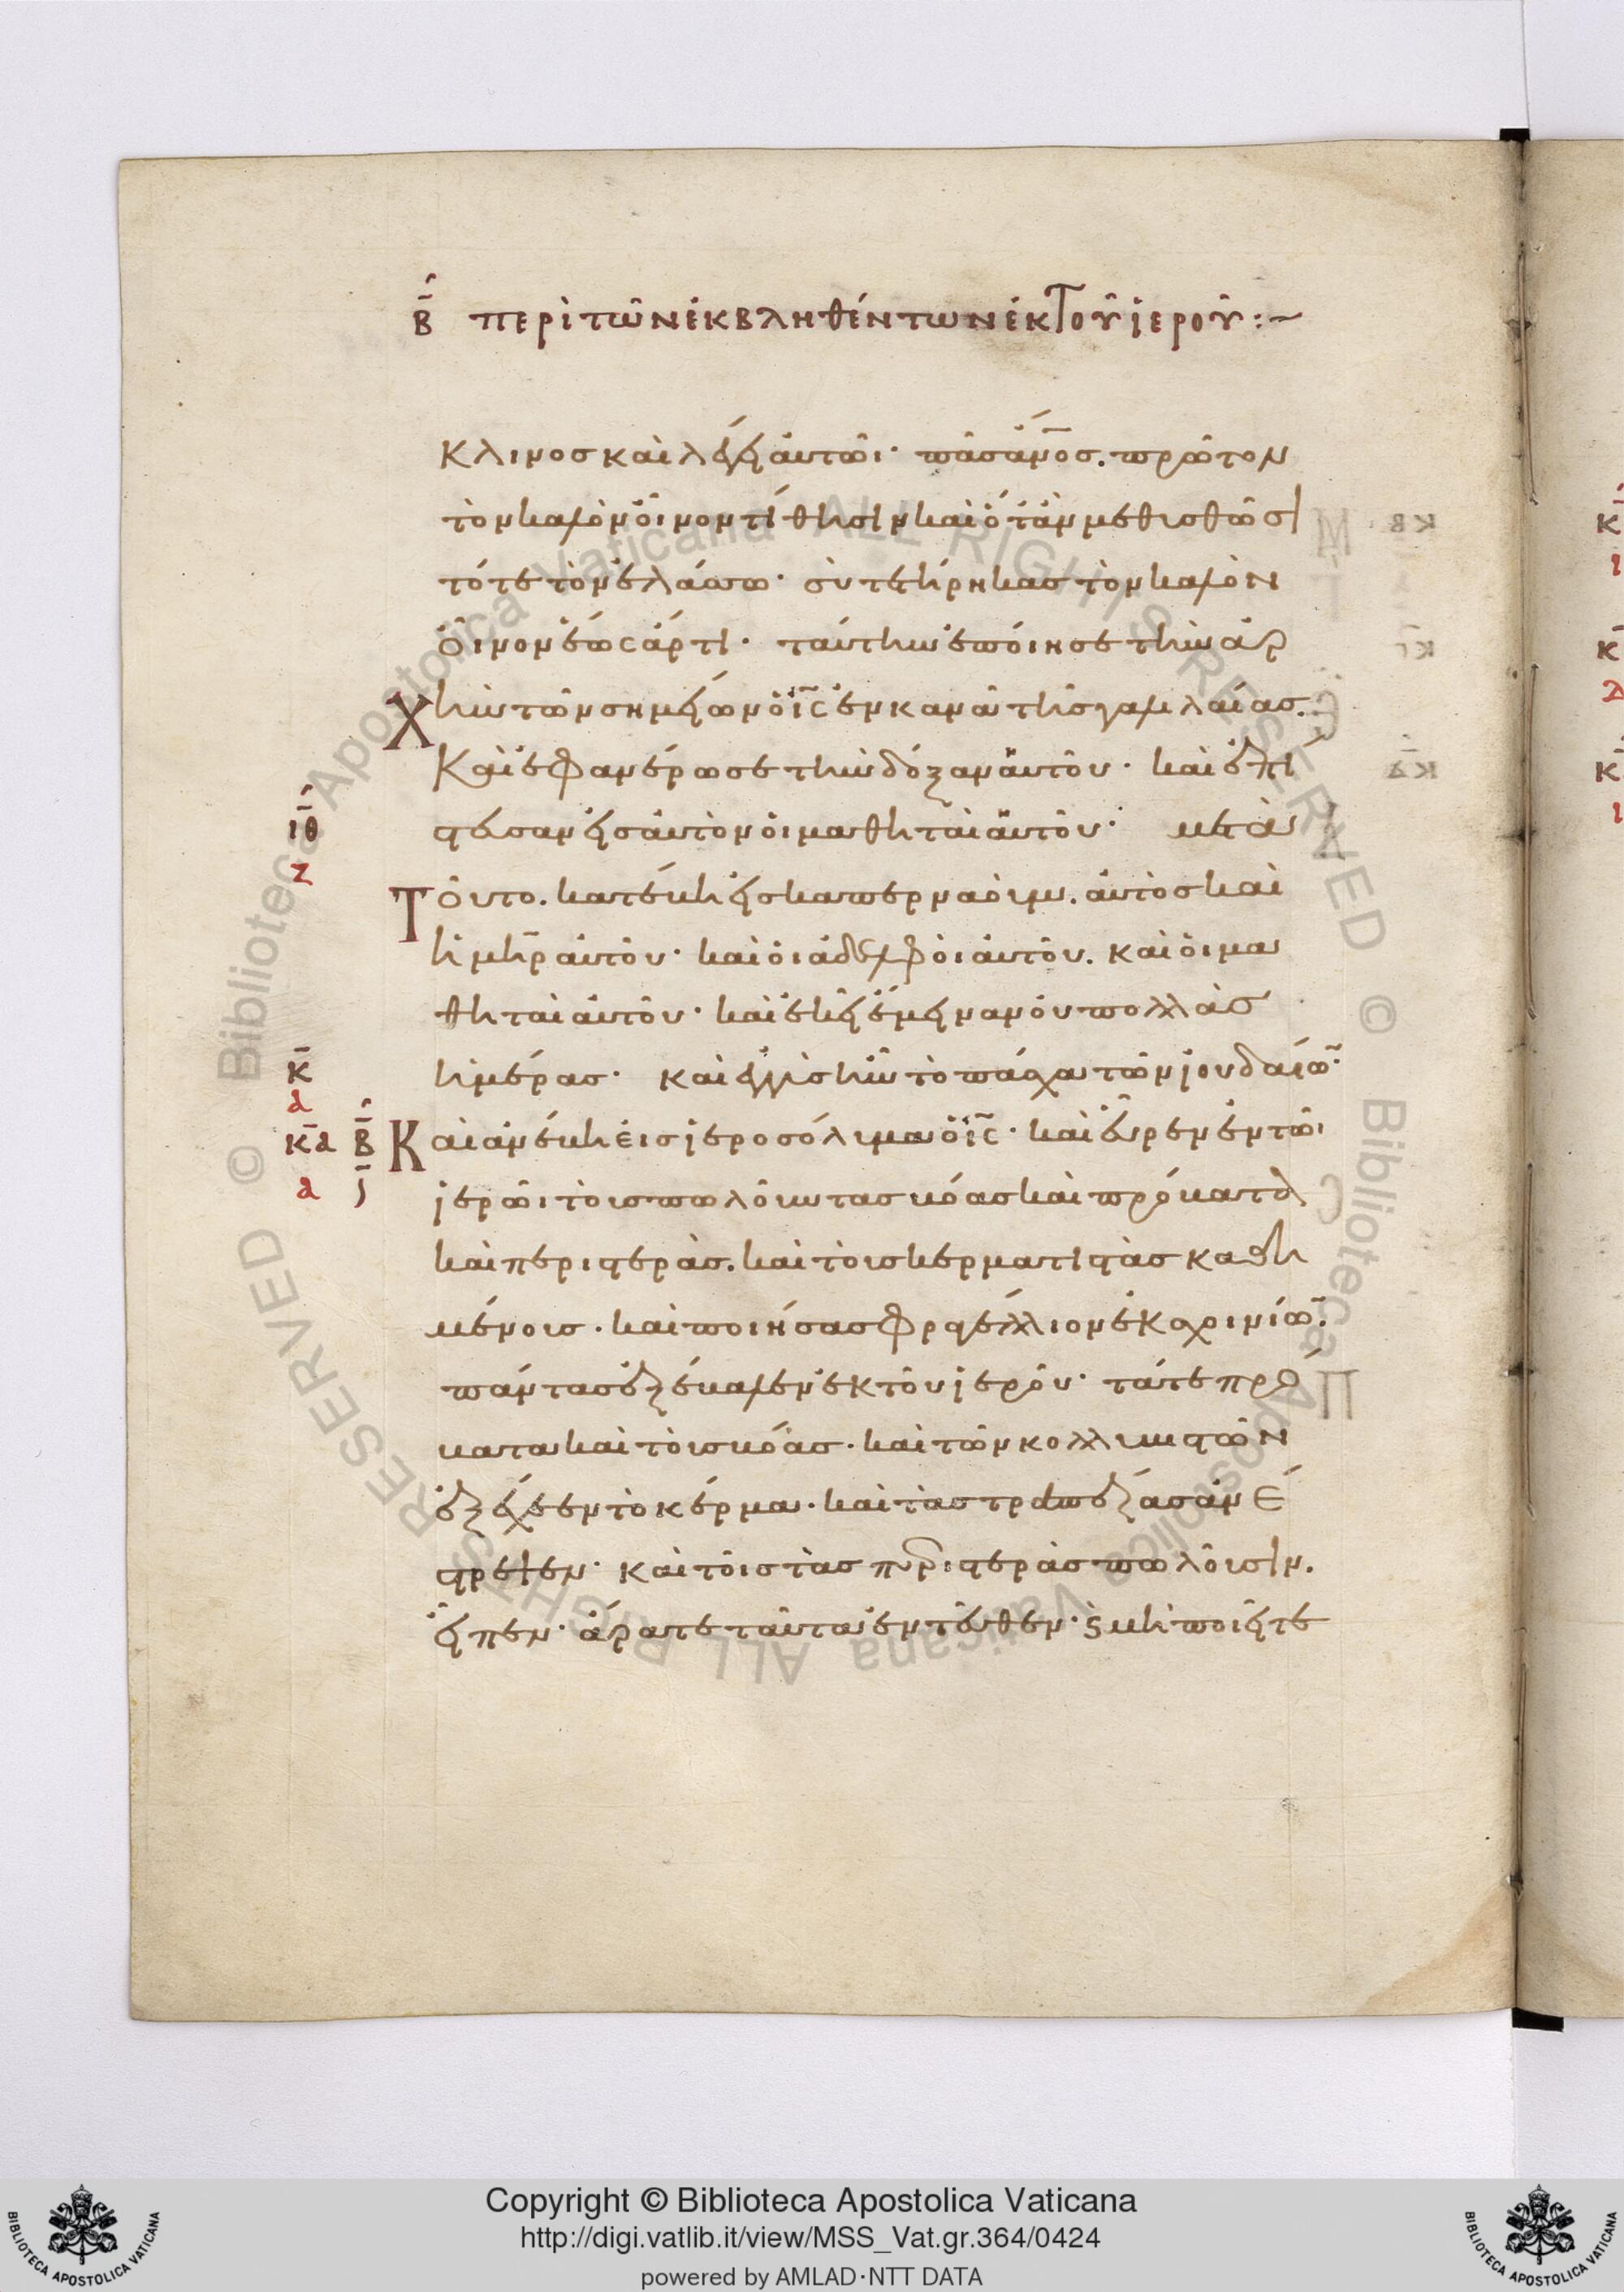 Β περὶ τῶν ἐκβληθέντων ἐκ τοῦ ἱεροῦ :~
κλινος καὶ λέγει αὐτῶι· πᾶς ἄνος. πρῶτον
τὸν καλὸν οἶνον τίθησιν καὶ ὅτὰν μεθυσθῶσι
τότε τὸν ἐλάσσω· σὺ τετήρηκας τὸν καλὸν
οἶνον ἕως ἄρτι· ταύτην ἐποίησε τὴν ἀρ
χὴν τῶν σημείων ὁ ις ἐν κανᾶ τῆς γαλιλαίας.
Καὶ ἐφανέρωσε τὴν δόξαν αὐτοῦ· καὶ ἐπί
στευσαν εἰς αὐτὸν οἱ μαθηταὶ αὐτοῦ· μετὰ
ιθ
ζ
Τοῦτο. κατέβη εἰς καπερναοὺμ. αὐτὸς καὶ
ἡ μηρ αὐτοῦ· καὶ οἱ ἀδελφοὶ αὐτοῦ. καὶ οἱ μα
θηταὶ αὐτοῦ· καὶ ἐκεῖ ἔμειναν οὐ πολλὰς
ἡμέρας· καὶ ἐγγὺς ἦν τὸ πάσχα τῶν ἰουδαίω·
κ
α
κα Β Καὶ ἀνέβη εἰς ἱεροσόλυμα ὁ ις· καὶ εὗρεν ἐν τῶι
α ι
ἱερῶι τοὺς πωλοῦντας βόας καὶ πρόβατα
καὶ περιστερὰς. καὶ τοὺς κερματιστὰς καθη
μένους. καὶ ποιήσας φραγέλλιον ἐκ σχοινίω.
πάντας ἐξέβαλεν ἐκ τοῦ ἱεροῦ· τάτε πρό
βατα καὶ τοὺς βόας. καὶ τῶν κολλυβιστῶν
ἐξέχεεν τὸ κέρμα. καὶ τὰς τραπέζας ἀνέ
στρεψεν· καὶ τοῖς τὰς περιστερὰς πωλοῦσιν.
εἶπεν· ἄρατε ταῦτα ἐντεῦθεν· ϗ μὴ ποιεῖτε
Copyright © Biblioteca Apostolica Vaticana
http://digi.vatlib.it/view/MSS_Vat.gr.364/0424
powered by AMLAD·NTT DATA